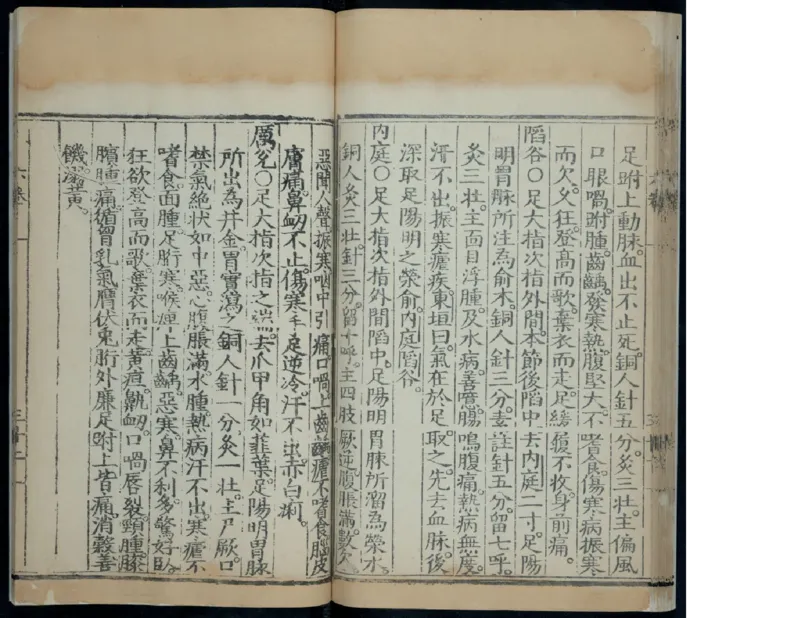 足跗上動脉。血出不止死。銅人針五分。灸三壮。主偏風
口眼喎。跗腫。齒齲。發寒熱。腹堅大。不嗜食。傷寒病振寒
而欠。久狂。登高而歌。棄衣而走。足緩履不收。身前痛。
陷谷〇足大指次指外間。本節後陷中。去内庭二寸。足陽
明胃脉所注為俞木。銅人針三分。素註針五分。留七呼。
灸三壮。主面目浮腫。及水病。善噫。腸鳴腹痛。熱病無度。
汗不出。振寒瘧疾。東垣曰。氣在於足。取之先去血脉。後
深取足陽明之滎俞。内庭陷谷。
内庭〇足大指次指外間陷中。足陽明胃脉所溜為滎水。
銅人灸三壮。針三分。留十呼。主四肢厥逆。腹脹滿。數欠。
惡聞人聲。振寒。咽中引痛。口喎。上齒齲。瘧不嗜食。腦皮
膚痛。鼻衂不止。傷寒手足逆冷。汗不出。赤白痢。
厲兌〇足大指次指之端。去爪甲角如韮葉。足陽明胃脉
所出為井金。胃實瀉之。銅人針一分。灸一壮。主尸厥。口
禁氣絶。狀如中惡。心腹脹滿。水腫。熱病汗不出。寒瘧不
嗜食。面腫。足胻寒。喉痺。上齒齲。惡寒。鼻不利。多驚好臥。
狂欲登高而歌。棄衣而走。黄疸。鼽衂。口喎唇裂。頸腫。膝
臏腫痛。循胷乳氣膺伏兎胻外廉足跗上皆痛。消穀善
饑。溺黄。
六卷